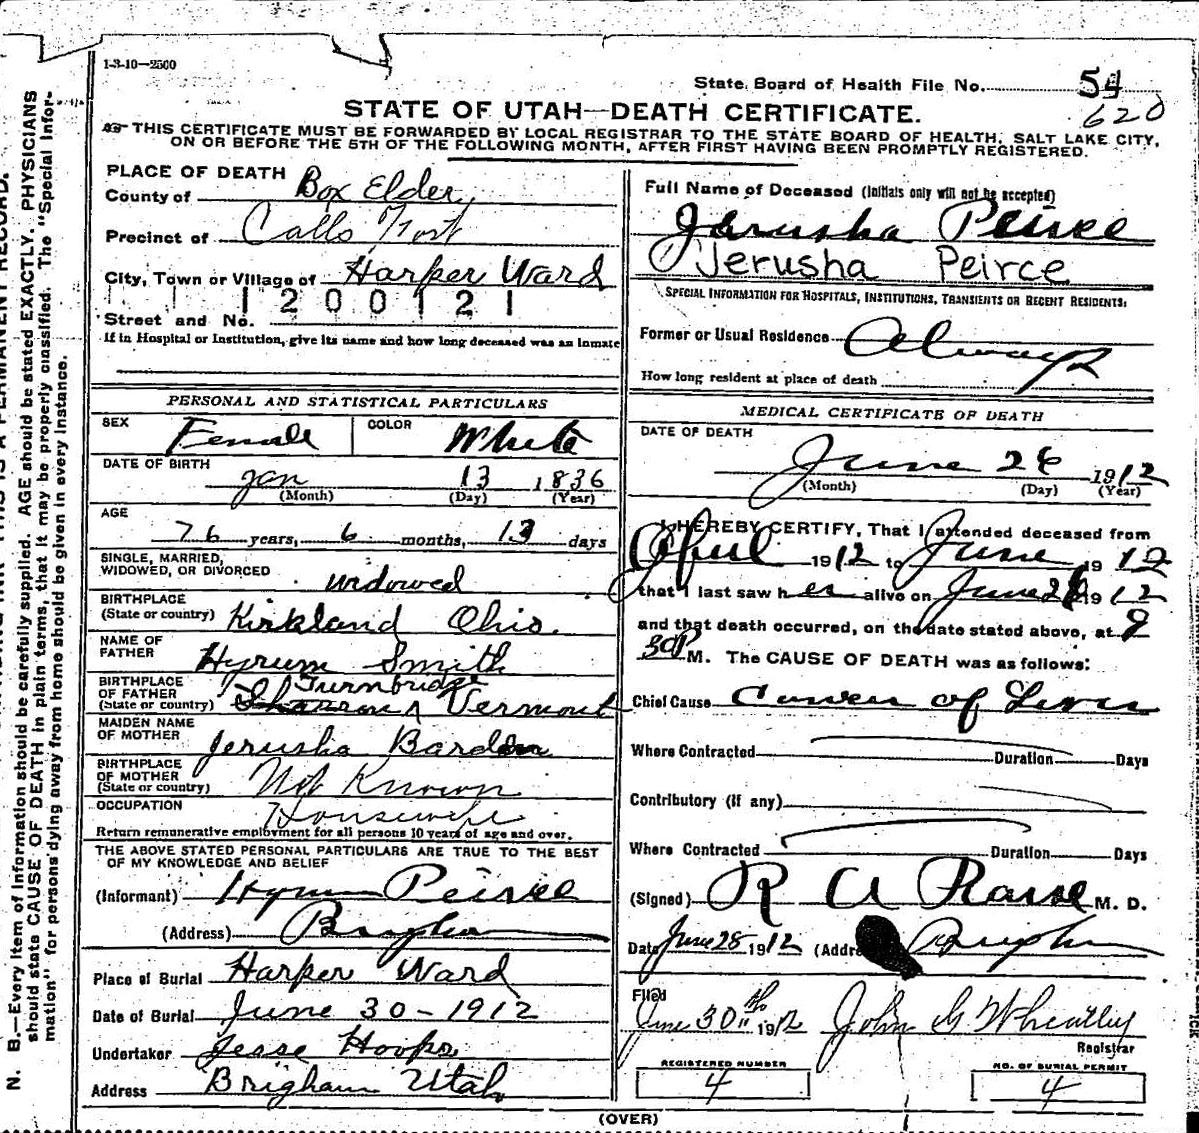 1-3-10—2500
State Board of Health File No. 54
620
STATE OF UTAH—DEATH CERTIFICATE.
THIS CERTIFICATE MUST BE FORWARDED BY LOCAL REGISTRAR TO THE STATE BOARD OF HEALTH, SALT LAKE CITY,
ON OR BEFORE THE 5TH OF THE FOLLOWING MONTH, AFTER FIRST HAVING BEEN PROMPTLY REGISTERED.
PLACE OF DEATH
County of Box Elder
Precinct of Calls Fort
City, Town or Village of Harper Ward
1200121
Street and No.
If in Hospital or Institution, give its name and how long deceased was an inmate
PERSONAL AND STATISTICAL PARTICULARS
SEX Female COLOR White
DATE OF BIRTH
Jan 13 1836
(Month) (Day) (Year)
AGE
76 years, 6 months, 13 days
SINGLE, MARRIED,
WIDOWED, OR DIVORCED widowed
BIRTHPLACE
(State or country) Kirkland Ohio.
NAME OF
FATHER Hyrum Smith
BIRTHPLACE
OF FATHER Turnbridge
(State or country) Vermont
MAIDEN NAME
OF MOTHER Jerusha Barden
BIRTHPLACE
OF MOTHER
(State or country) Not Known
OCCUPATION Housewife
Return remunerative employment for all persons 10 years of age and over.
THE ABOVE STATED PERSONAL PARTICULARS ARE TRUE TO THE BEST
OF MY KNOWLEDGE AND BELIEF
(Informant) Hyrum Peirce
(Address) Brigham
Place of Burial Harper Ward
Date of Burial June 30-1912
Undertaker Jesse Hoops
Address Brigham Utah
Full Name of Deceased (Initials only will not be accepted)
Jerusha Peirce
Jerusha Peirce
SPECIAL INFORMATION FOR HOSPITALS, INSTITUTIONS, TRANSIENTS OR RECENT RESIDENTS:
Former or Usual Residence Always
How long resident at place of death
MEDICAL CERTIFICATE OF DEATH
DATE OF DEATH
June 26 1912
(Month) (Day) (Year)
I HEREBY CERTIFY, That I attended deceased from
April 1912 to June 1912
that I last saw her alive on June 26 1912
and that death occurred, on the date stated above, at 9
30P M. The CAUSE OF DEATH was as follows:
Chief Cause Cancer of Liver
Where Contracted Duration Days
Contributory (if any)
Where Contracted Duration Days
(Signed) R A M. D.
Date June 28 1912 (Address) Brigham
Filed
June 30th 1912 John G Wheatley
Registrar
REGISTERED NUMBER
4
NO. OF BURIAL PERMIT
4
(OVER)
N. B.—Every item of information should be carefully supplied. AGE should be stated EXACTLY. PHYSICIANS
should state CAUSE OF DEATH in plain terms, that it may be properly classified. The "Special Infor-
mation" for persons dying away from home should be given in every instance.